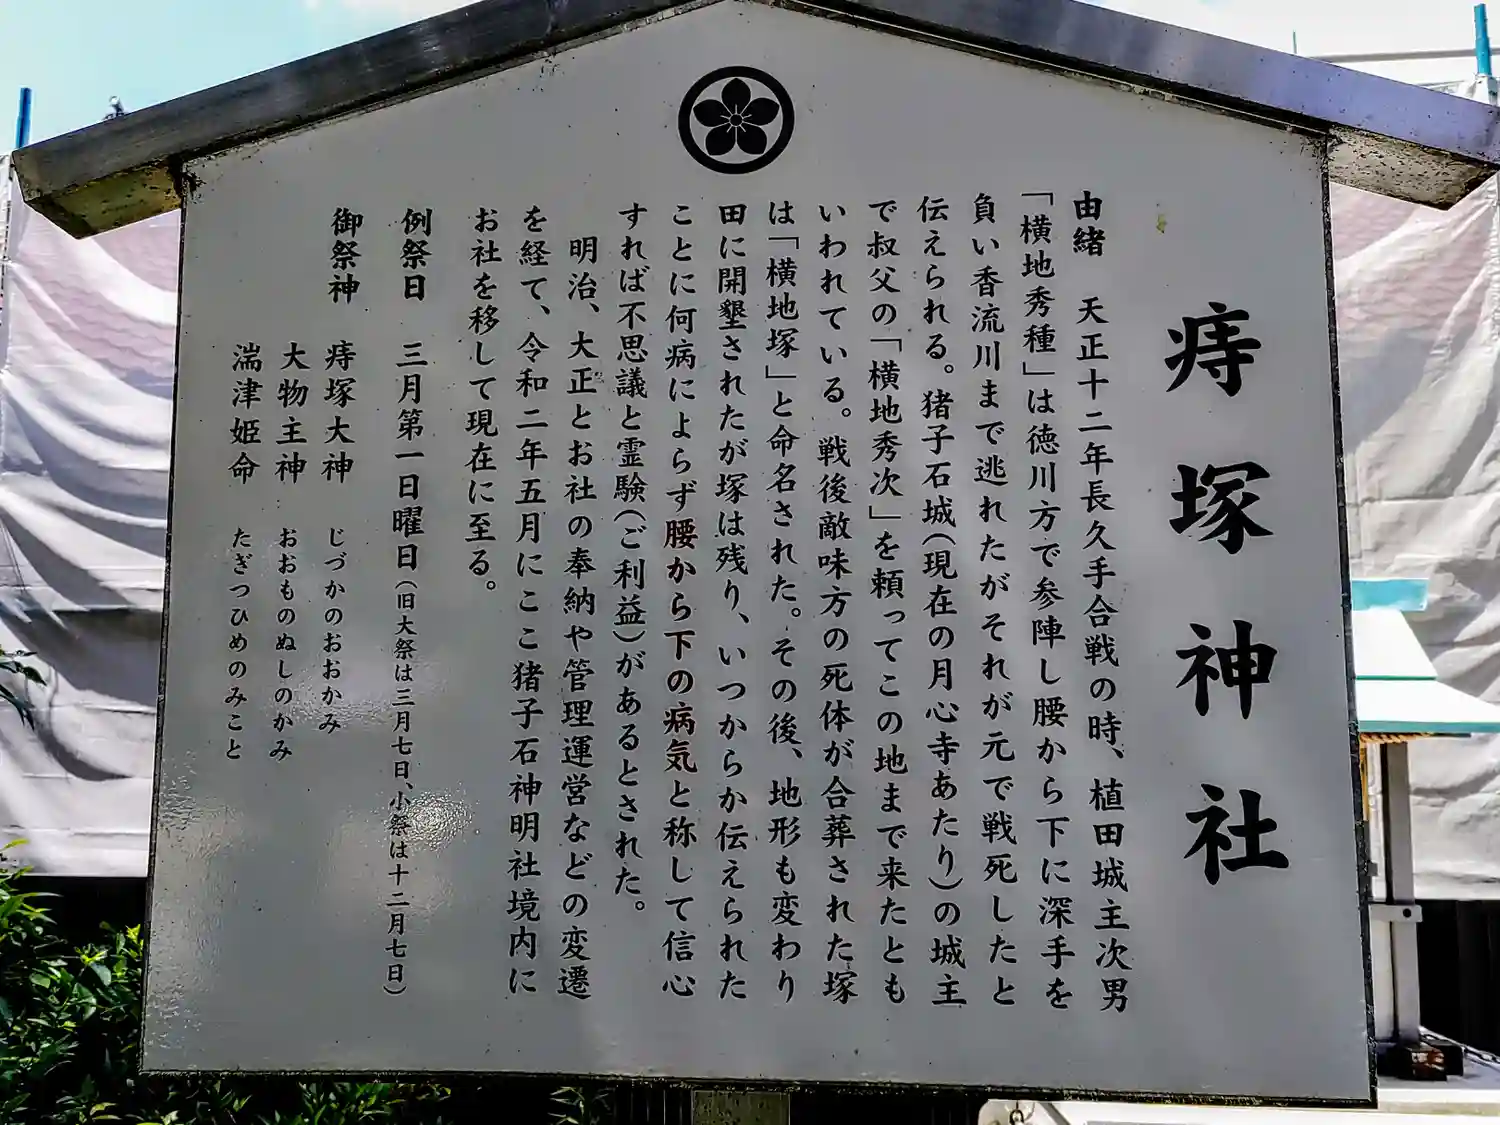 痔塚神社
由緒　天正十二年長久手合戦の時、植田城主次男
「横地秀種」は徳川方で参陣し腰から下に深手を
負い香流川まで逃れたがそれが元で戦死したと
伝えられる。猪子石城(現在の月心寺あたり)の城主
で叔父の「横地秀次」を頼ってこの地まで来たとも
いわれている。戦後敵味方の死体が合葬された塚
は「横地塚」と命名された。その後、地形も変わり
田に開墾されたが塚は残り、いつからか伝えられた
ことに何病によらず腰から下の病気と称して信心
すれば不思議と霊験(ご利益)があるとされた。
明治、大正とお社の奉納や管理運営などの変遷
を経て、令和二年五月にここ猪子石神明社境内に
お社を移して現在に至る。
例祭日　三月第一日曜日(旧大祭は三月七日、小祭は十二月七日)
御祭神　痔塚大神　じづかのおおかみ
大物主神　おおものぬしのかみ
湍津姫命　たぎつひめのみこと